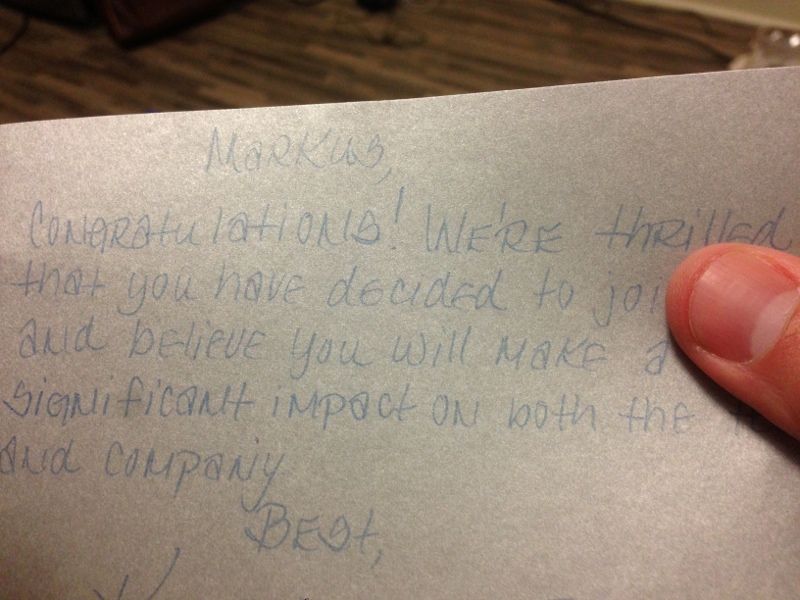 Markus,
Congratulations! We're thrilled
that you have decided to
and believe you will make a
significant impact on both the
and company
Best,